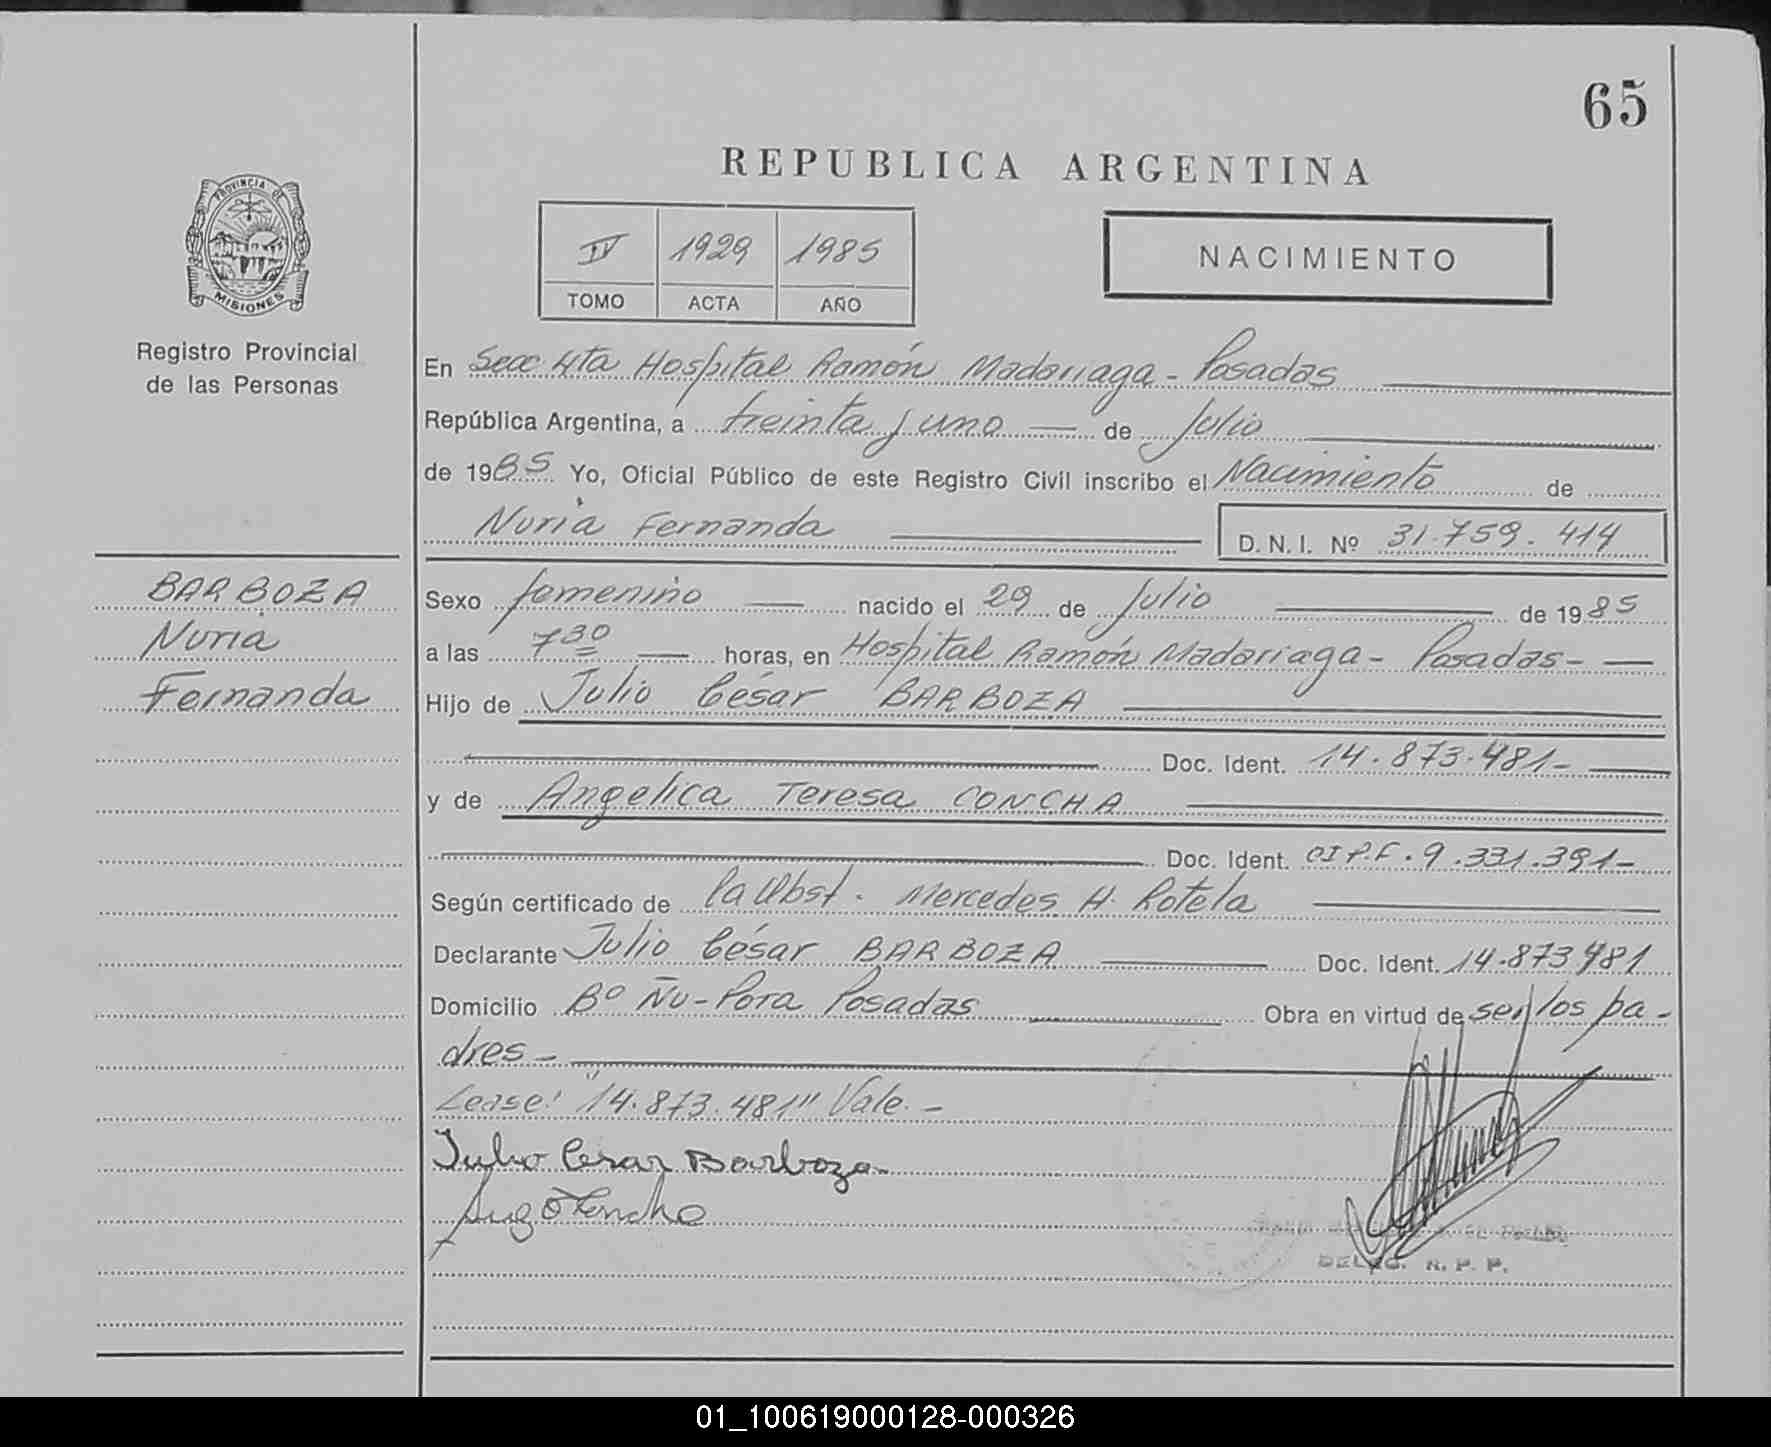 65
REPUBLICA ARGENTINA
PROVINCIA DE
MISIONES
IV 1929 1985
TOMO ACTA AÑO
NACIMIENTO
Registro Provincial
de las Personas
En Secc 4ta Hospital Ramón Madariaga - Posadas
República Argentina, a treinta y uno — de Julio
de 1985 Yo, Oficial Público de este Registro Civil inscribo el Nacimiento de
Nuria Fernanda D. N. I. Nº 31.759.414
BARBOZA
Nuria
Fernanda
Sexo femenino — nacido el 29 de Julio de 1985
a las 7 30 — horas, en Hospital Ramón Madariaga - Posadas - —
Hijo de Julio César BARBOZA
Doc. Ident. 14.873.481-
y de Angelica Teresa CONCHA
Doc. Ident. CI P.F. 9.331.391-
Según certificado de la Obst. Mercedes H. Rotela
Declarante Julio César BARBOZA Doc. Ident. 14.873.481
Domicilio Bº Ñu-Pora Posadas Obra en virtud de ser los pa-
dres -
Lease: "14.873.481" Vale. -
Julio Cesar Barboza
DELEG. R. P. P.
01_100619000128-000326